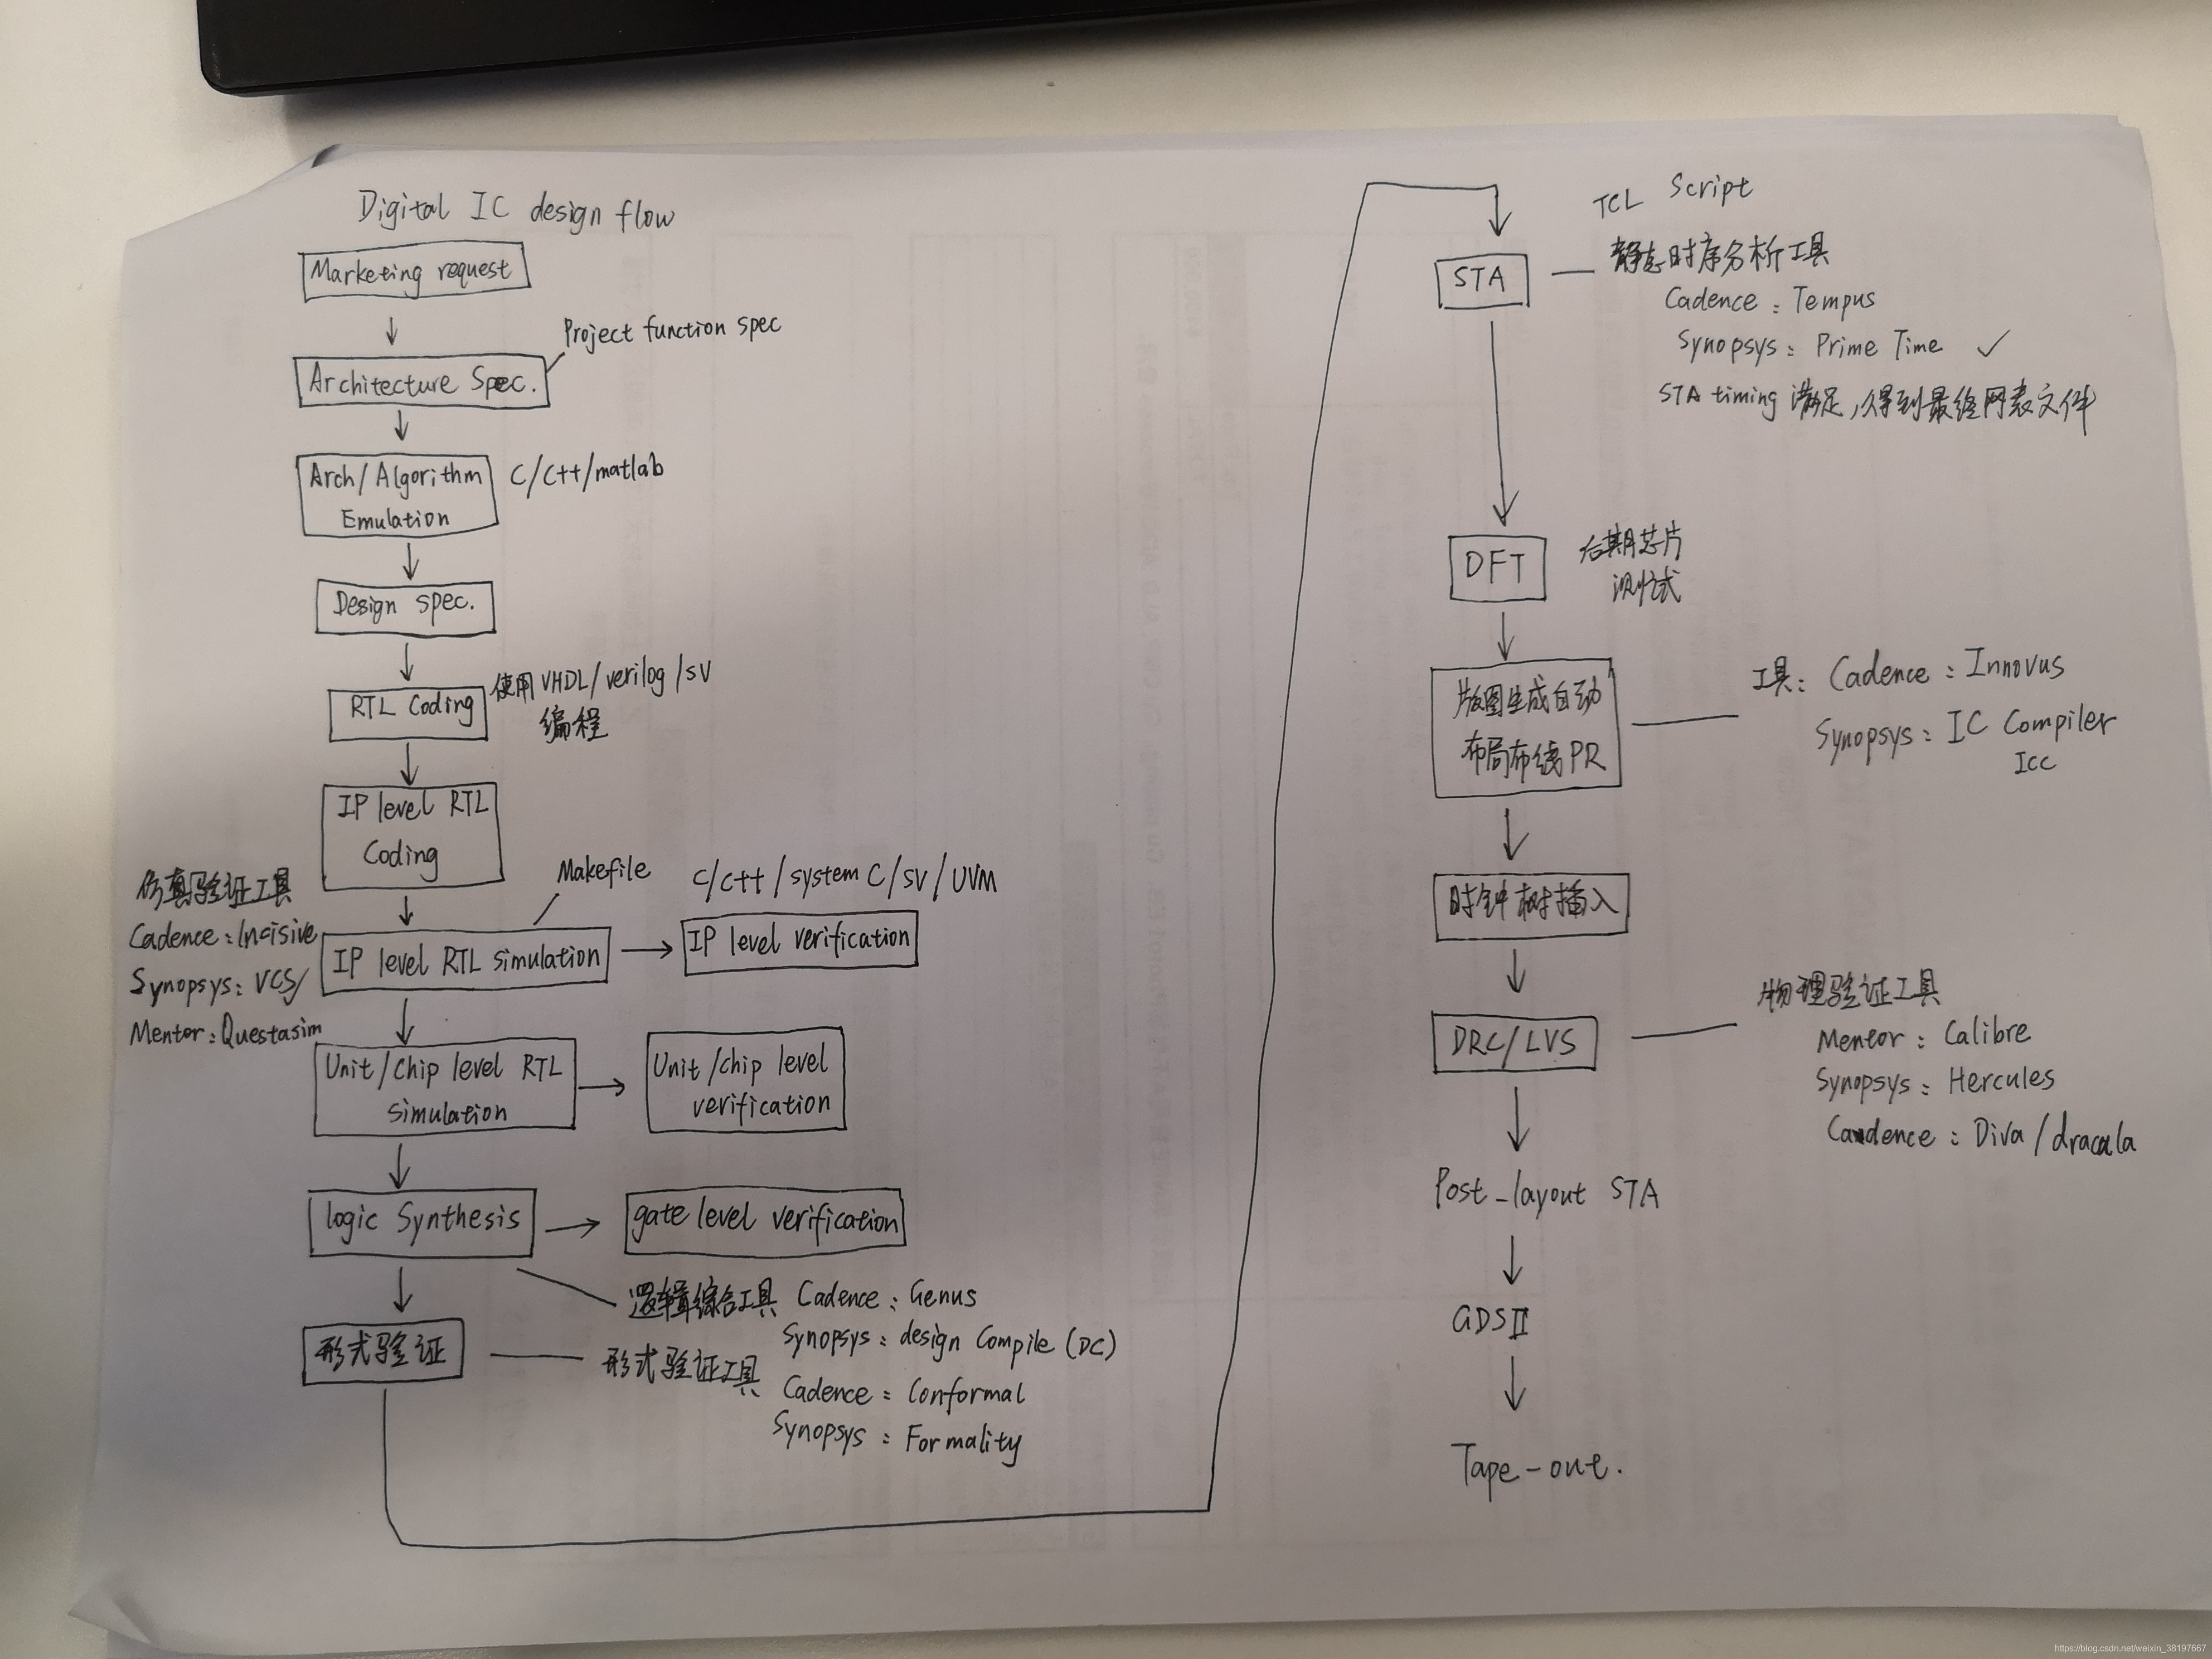 Digital IC design flow
Marketing request
Project function spec
Architecture Spec.
Arch/Algorithm
Emulation
C/C++/matlab
Design spec.
RTL Coding
使用VHDL/verilog/SV
编程
IP level RTL
Coding
仿真验证工具
Cadence:Incisive
Synopsys: VCS/
Mentor:Questasim
Makefile
C/C++/system C/SV/UVM
IP level RTL simulation
IP level verification
Unit/Chip level RTL
simulation
Unit/chip level
verification
logic Synthesis
gate level verification
逻辑综合工具 Cadence: Genus
Synopsys: design Compile (DC)
形式验证
形式验证工具
Cadence: Conformal
Synopsys: Formality
TCL Script
STA
静态时序分析工具
Cadence: Tempus
Synopsys: Prime Time ✓
STA timing 满足,得到最终网表文件
DFT
后期芯片
测试
版图生成自动
布局布线PR
工具: Cadence: Innovus
Synopsys: IC Compiler
Icc
时钟树插入
DRC/LVS
物理验证工具
Mentor: Calibre
Synopsys: Hercules
Candence: Diva/dracala
Post_layout STA
GDSII
Tape-out.
https://blog.csdn.net/weixin_38197667